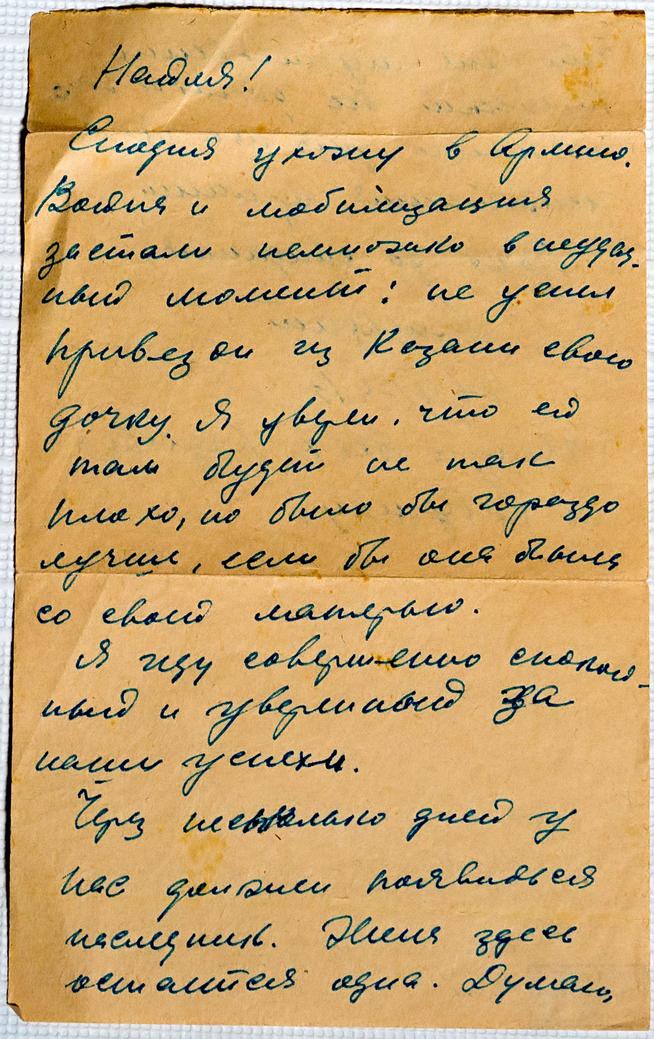 Надля!
Сегодня ухожу в Армию.
Война и мобилизация
застали немножко в неудач-
ный момент: не успел
привезти из Казани свою
дочку. Я уверен, что ей
там будет не так
плохо, но было бы гораздо
лучше, если бы она была
со своей матерью.
Я иду совершенно спокой-
ный и уверенный за
наши успехи.
Через несколько дней у
нас должен появиться
наследник. Женя здесь
остается одна. Думаю,